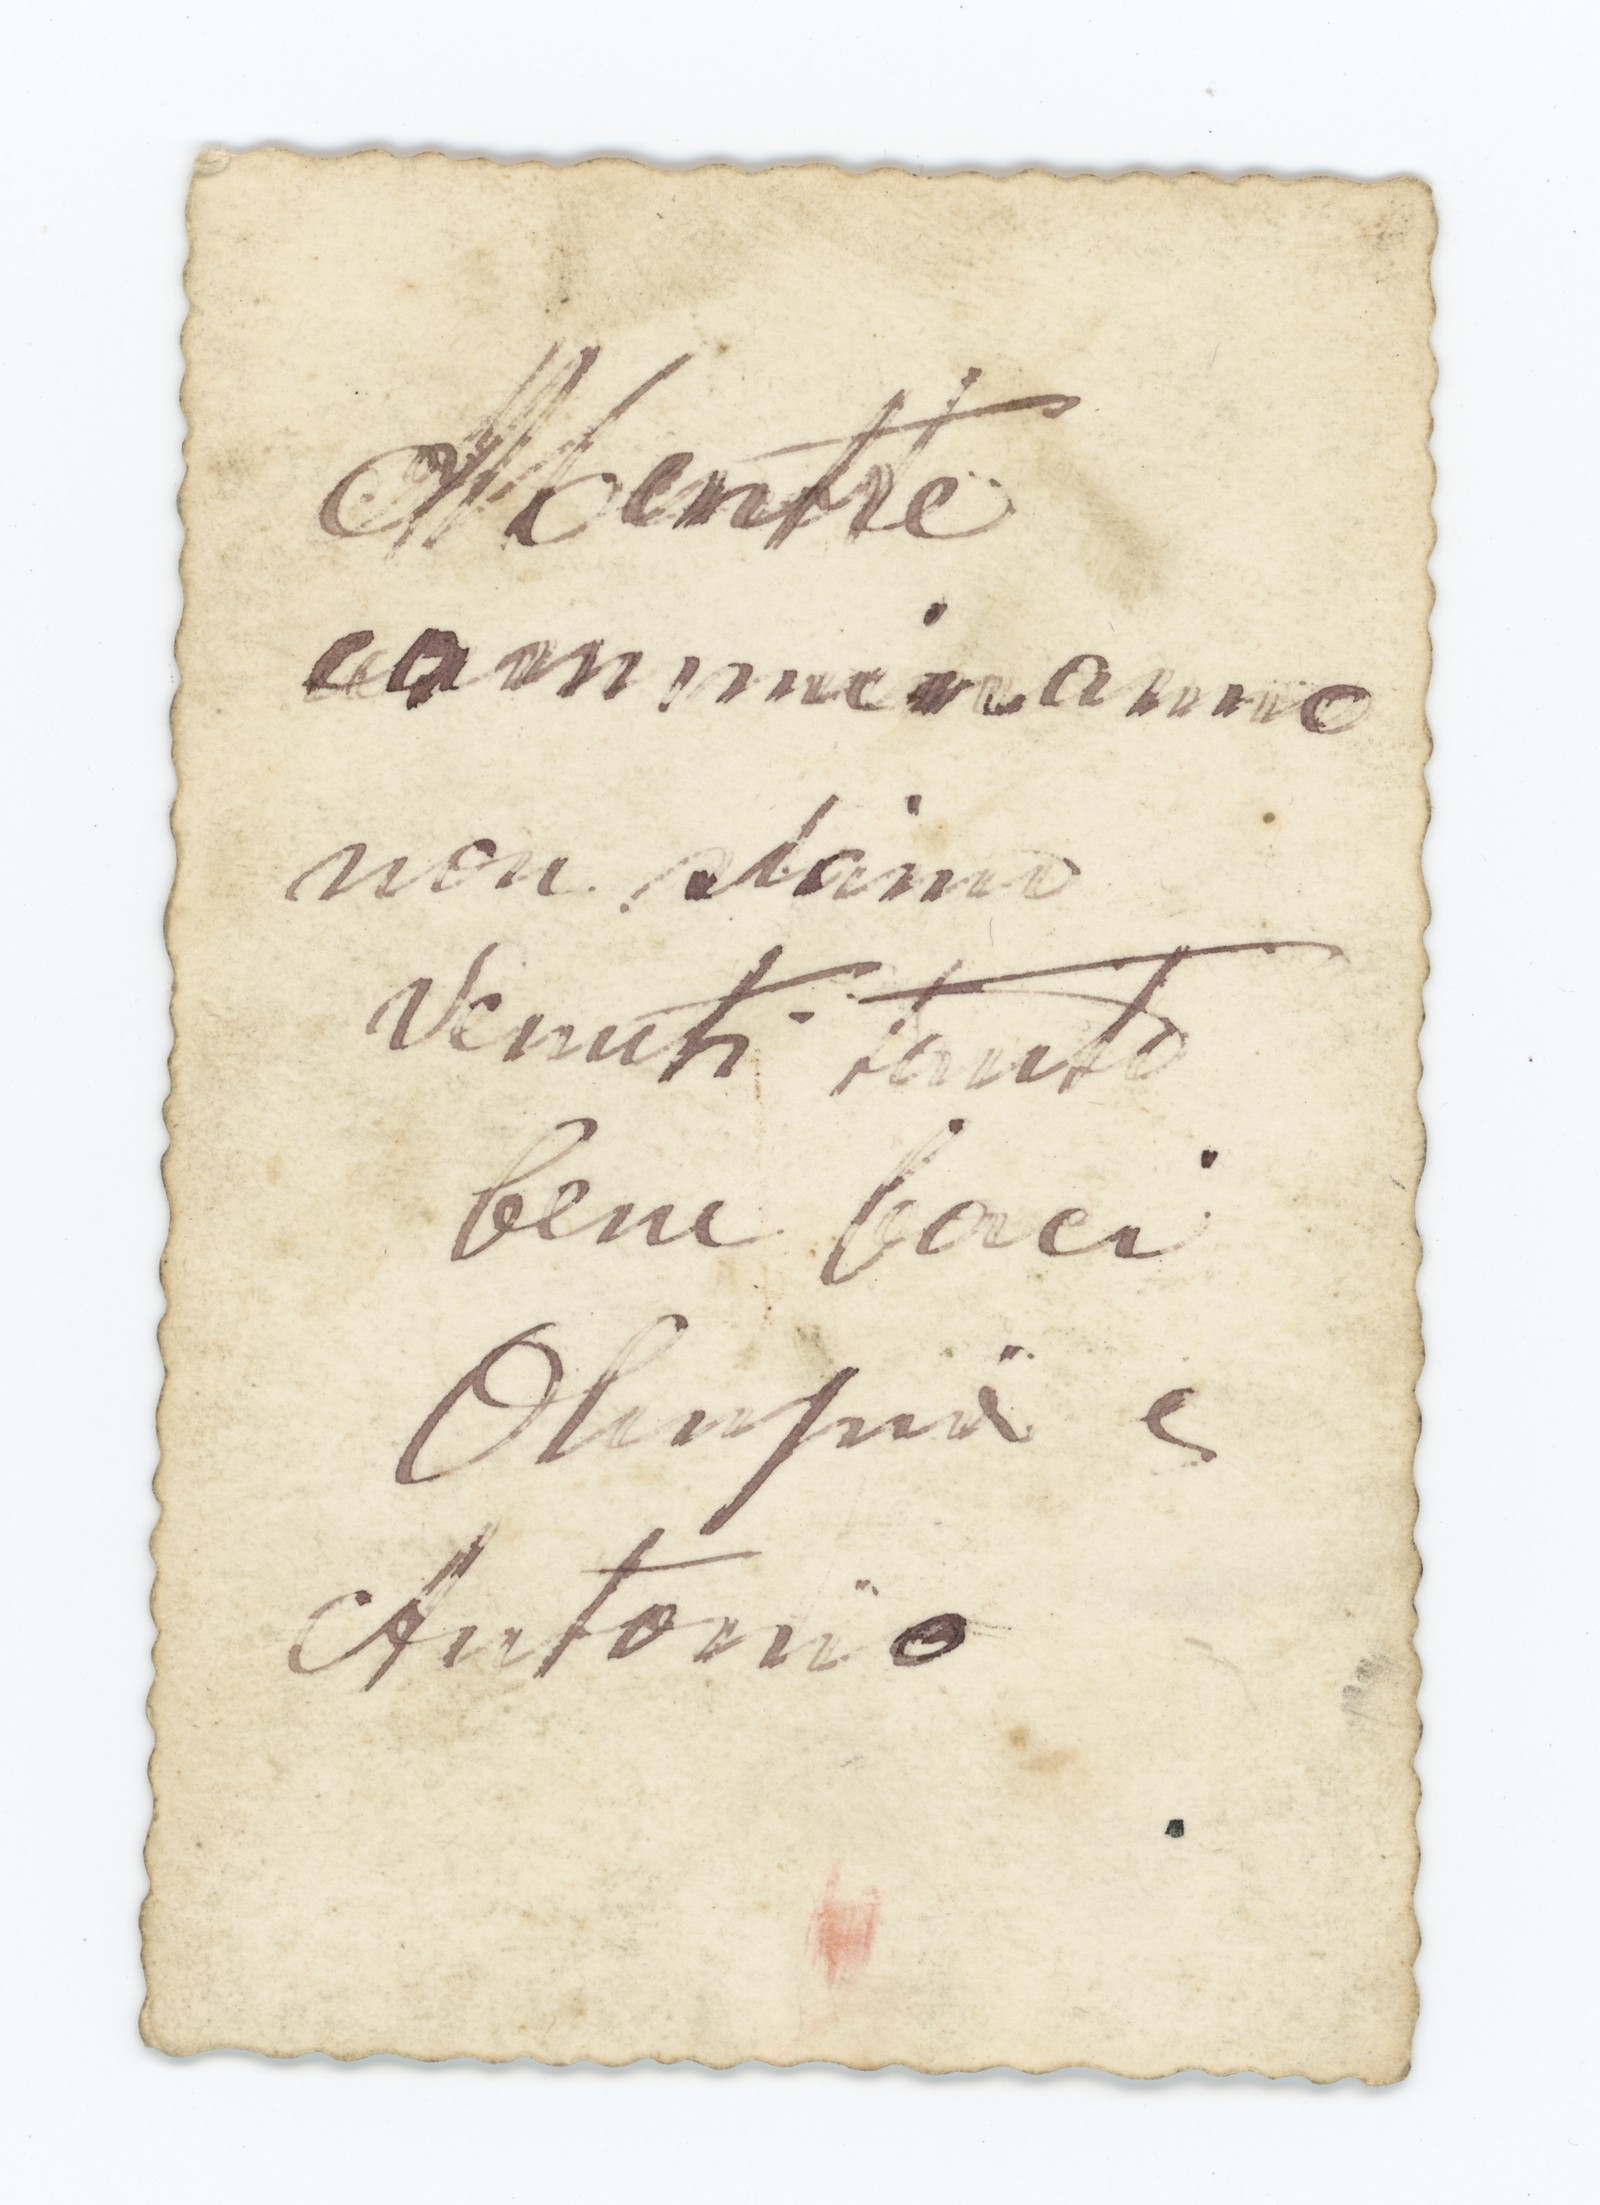 Mentre
camminavamo
non siamo
venuti tanto
bene baci
Olimpia e
Antonio